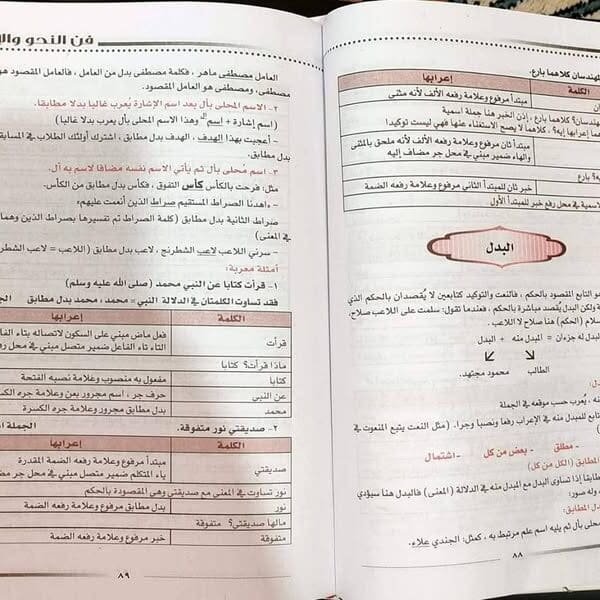 هندسان كلاهما بارع.
الكلمة إعرابها
ان مبتدأ مرفوع وعلامة رفعه الألف لأنه مثنى
هندسان؟ كلاهما بارع . إذن الخبر هنا جملة اسمية
هما إعرابها إيه؟ . كلاهما لا يصح الاستغناء عنها فهي ليست توكيدا
مبتدأ ثان مرفوع وعلامة رفعه الألف لأنه ملحق بالمثنى
والهاء ضمير مبني في محل جر مضاف إليه
ه؟ بارع خبر ثان للمبتدأ الثاني مرفوع وعلامة رفعه الضمة
لاسمية في محل رفع خبر للمبتدأ الأول
البدل
هو التابع المقصود بالحكم ، فالنعت والتوكيد كتابعين لا يُقصدان بالحكم الذي
ولكن البدل يُقصد مباشرة بالحكم ، فعندما تقول: سلمت على اللاعب صلاح،
سلام (الحكم) هنا صلاح لا اللاعب .
بدل له جزءان = المبدل منه + البدل
الطالب محمود مجتهد.
نه ، يُعرب حسب موقعه في الجملة
تابع للمبدل منه في الإعراب رفعا ونصبا وجرا. (مثل النعت يتبع المنعوت في
- مطلق - بعض من كل - اشتمال
المطابق (الكل من كل)
مطابقا إذا تساوى البدل مع المبدل منه في الدلالة (المعنى) فالبدل هنا سيؤدي
وله صور:
البدل المطابق:
محلى بأل ثم يليه اسم علم مرتبط به ، كمثل: الجندي علاء.
٨٨
فن النحو والإ
العامل مصطفى ماهر ، فكلمة مصطفى بدل من العامل ، فالعامل المقصود هو
مصطفى، ومصطفى هو العامل المقصود.
٢- الاسم المحلى بأل بعد اسم الإشارة يُعرب غالبا بدلا مطابقا.
(اسم إشارة + اسم الـ وهذا الاسم المحلى بأل يُعرب بدلا غالبا)
- أعجبت بهذا الهدف ، الهدف بدل مطابق ، اشترك أولئك الطلاب في المسابقة
بدل مطابق.
٣- اسم مُحلى بأل ثم يأتي الاسم نفسه مضافا لاسم به أل.
مثل: فرحت بالكأس كأس التفوق ، فكأس بدل مطابق من الكأس.
- «اهدنا الصراط المستقيم صراط الذين أنعمت عليهم»
صراط الثانية بدل مطابق (كلمة الصراط تم تفسيرها بصراط الذين وهما
في المعنى)
- سرني اللاعب لاعب الشطرنج ، لاعب بدل مطابق (اللاعب = لاعب الشطرنج
أمثلة معربة:
١- قرأت كتابا عن النبي محمد (صلى الله عليه وسلم)
فقد تساوت الكلمتان في الدلالة النبي = محمد، محمد بدل مطابق
الكلمة إعرابها
قرأت فعل ماض مبني على السكون لاتصاله بتاء الفاعل
التاء تاء الفاعل ضمير متصل مبني في محل رفع
ماذا قرأت؟ كتابا
كتابا مفعول به منصوب وعلامة نصبه الفتحة
عن النبي حرف جر ، اسم مجرور بعن وعلامة جره الكسرة
محمد بدل مطابق مجرور وعلامة جره الكسرة
٢- صديقتي نور متفوقة. الجملة
الكلمة إعرابها
صديقتي مبتدأ مرفوع وعلامة رفعه الضمة المقدرة
ياء المتكلم ضمير متصل مبني في محل جر
نور تساوت في المعنى مع صديقتي وهي المقصودة بالحكم
نور بدل مطابق مرفوع وعلامة رفعه الضمة
مالها صديقتي؟ متفوقة
متفوقة خبر مرفوع وعلامة رفعه الضمة
٨٩